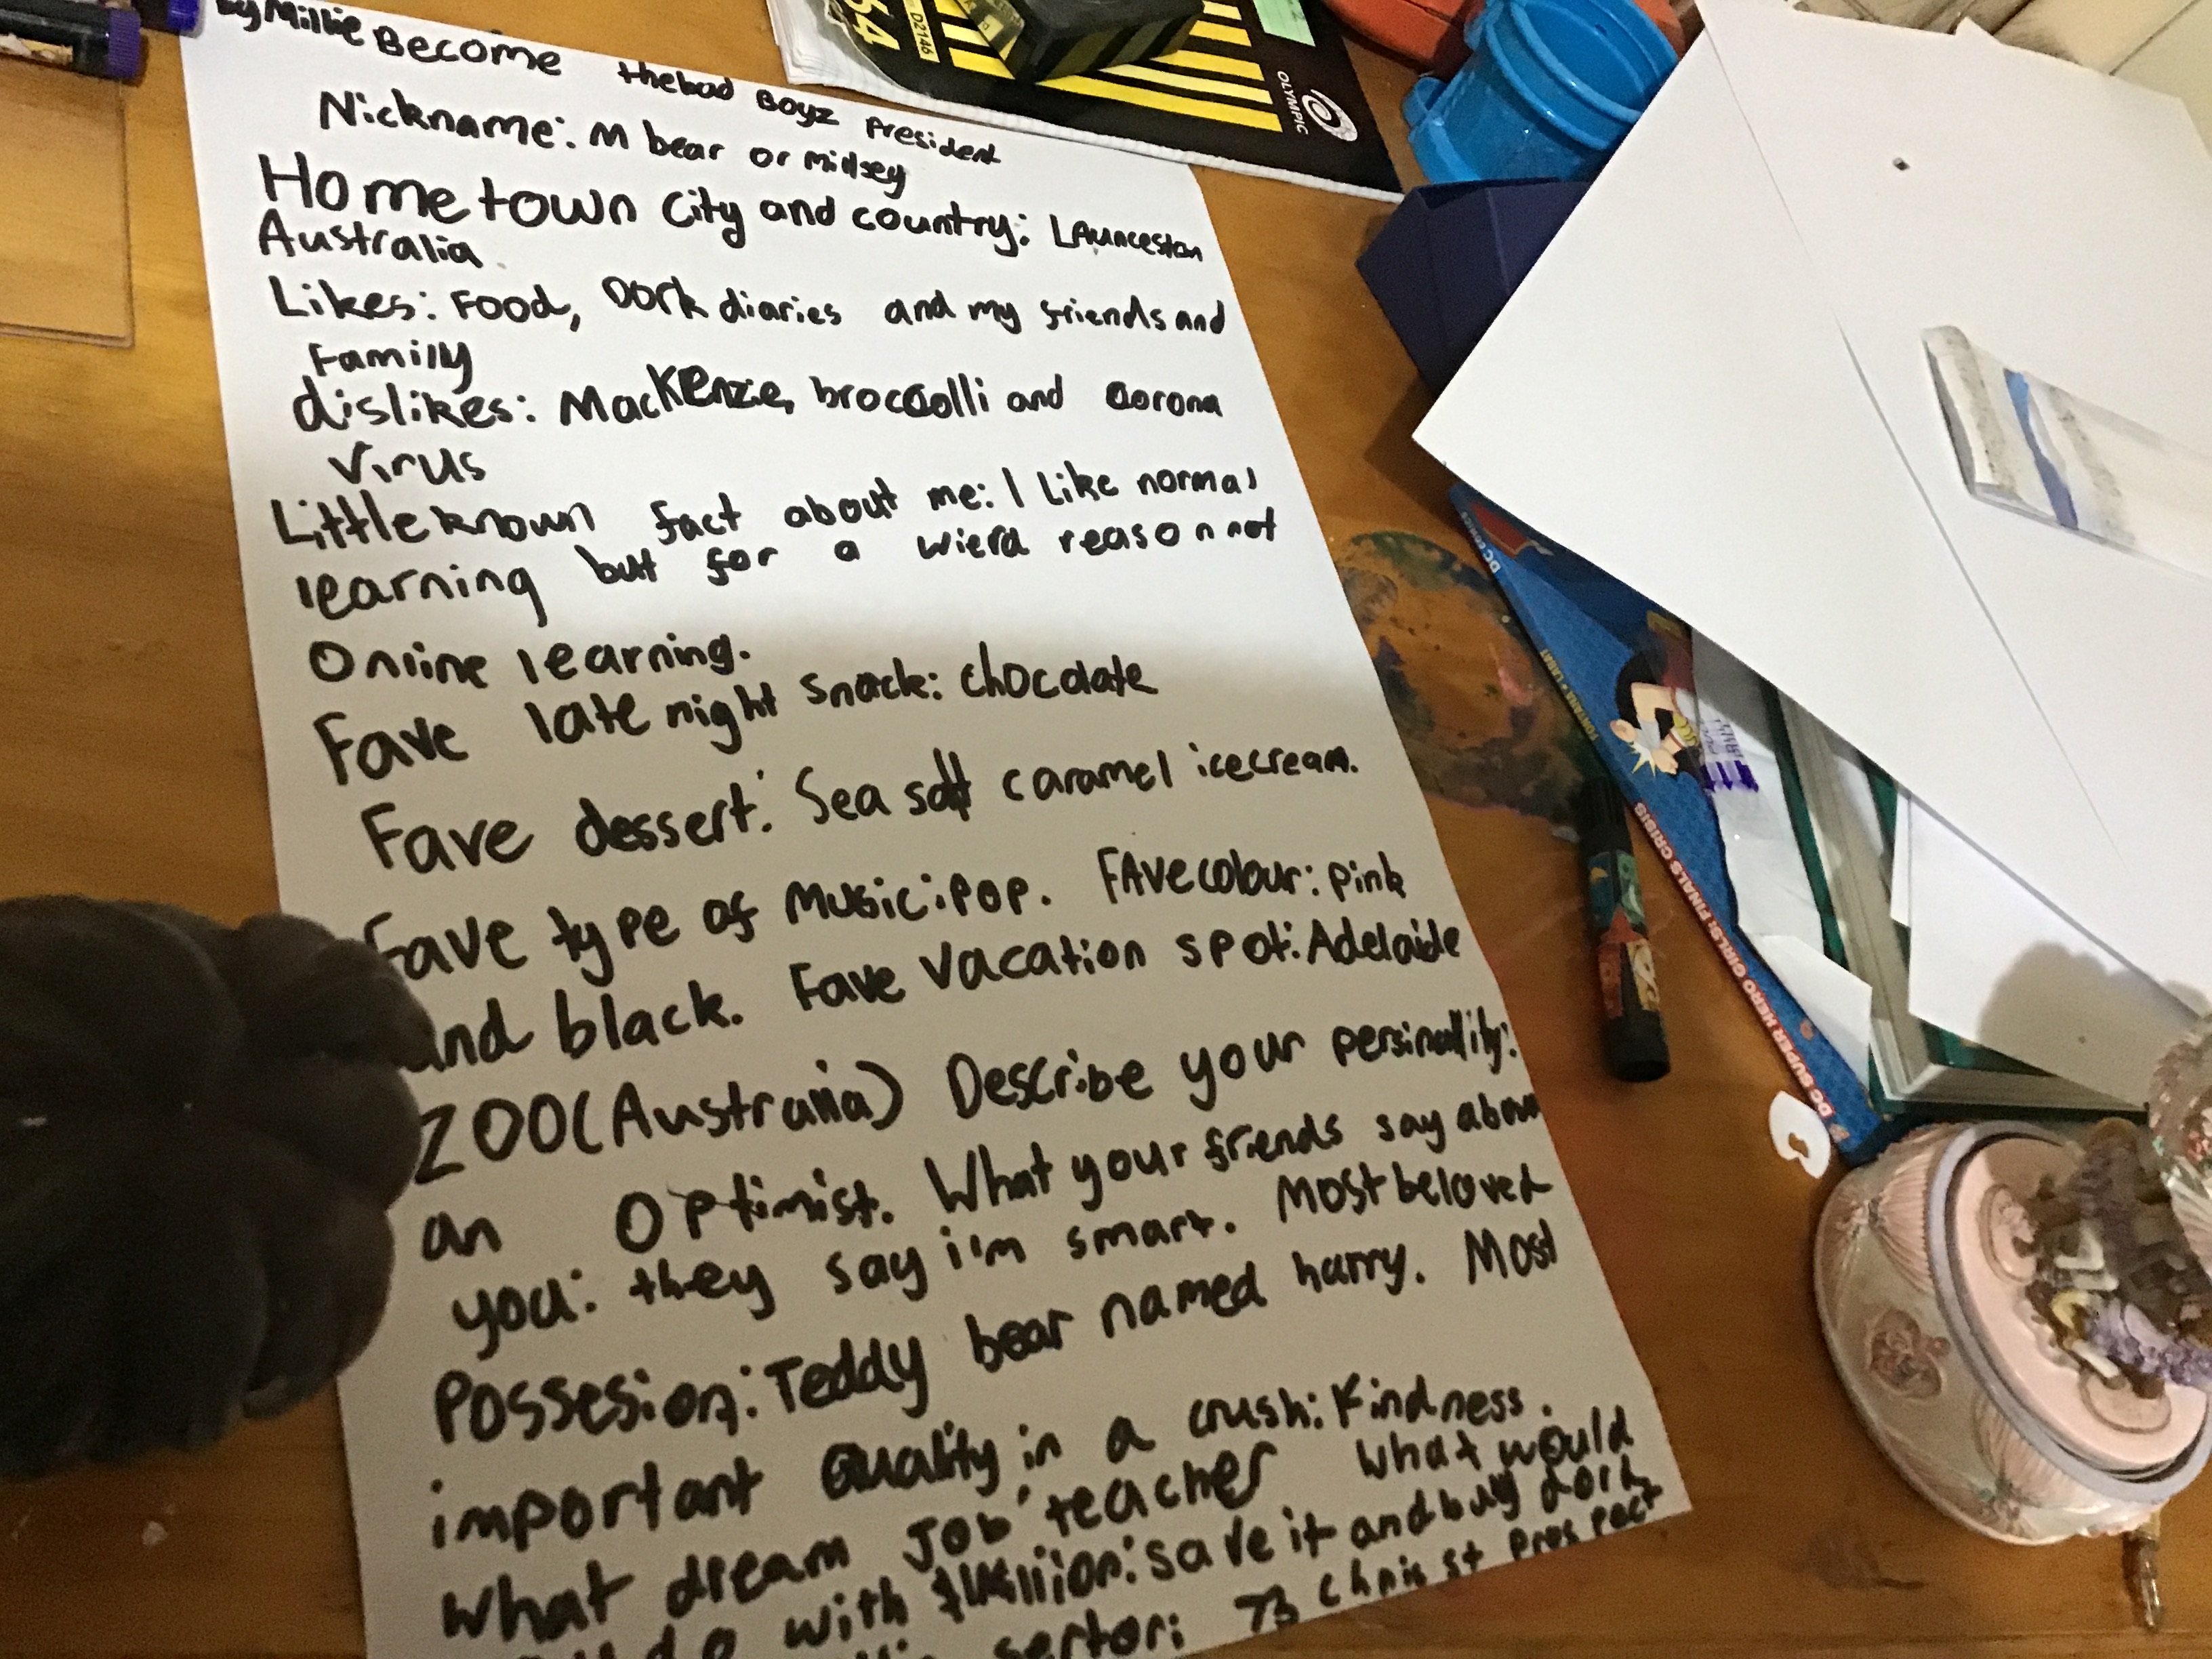 by Millie Become the bad Boyz President
Nickname: M bear or midsey
Hometown City and country: LAunceston
Australia
Likes: Food, Dork diaries and my friends and
Family
dislikes: MacKenzie, broccolli and corona
Virus
Little known fact about me: I like normal
learning but for a wierd reason not
Online learning.
Fave late night snack: chocolate
Fave dessert: Sea salt caramel icecream.
Fave type of Music: Pop. FAve colour: pink
and black. Fave vacation spot: Adelaide
ZOO (Australia) Describe your persinallity:
an Optimist. What your friends say about
you: they say i'm smart. Most beloved
Possesion: Teddy bear named harry. Most
important Quality in a crush: Kindness.
What dream Job: teacher What would
do with save it and buy dork
sector: 73 st Prospect
64
D2146
OLYMPIC
DC COMICS
FONTANA • LABAT
DC SUPER HERO GIRLS: FINALS CRISIS